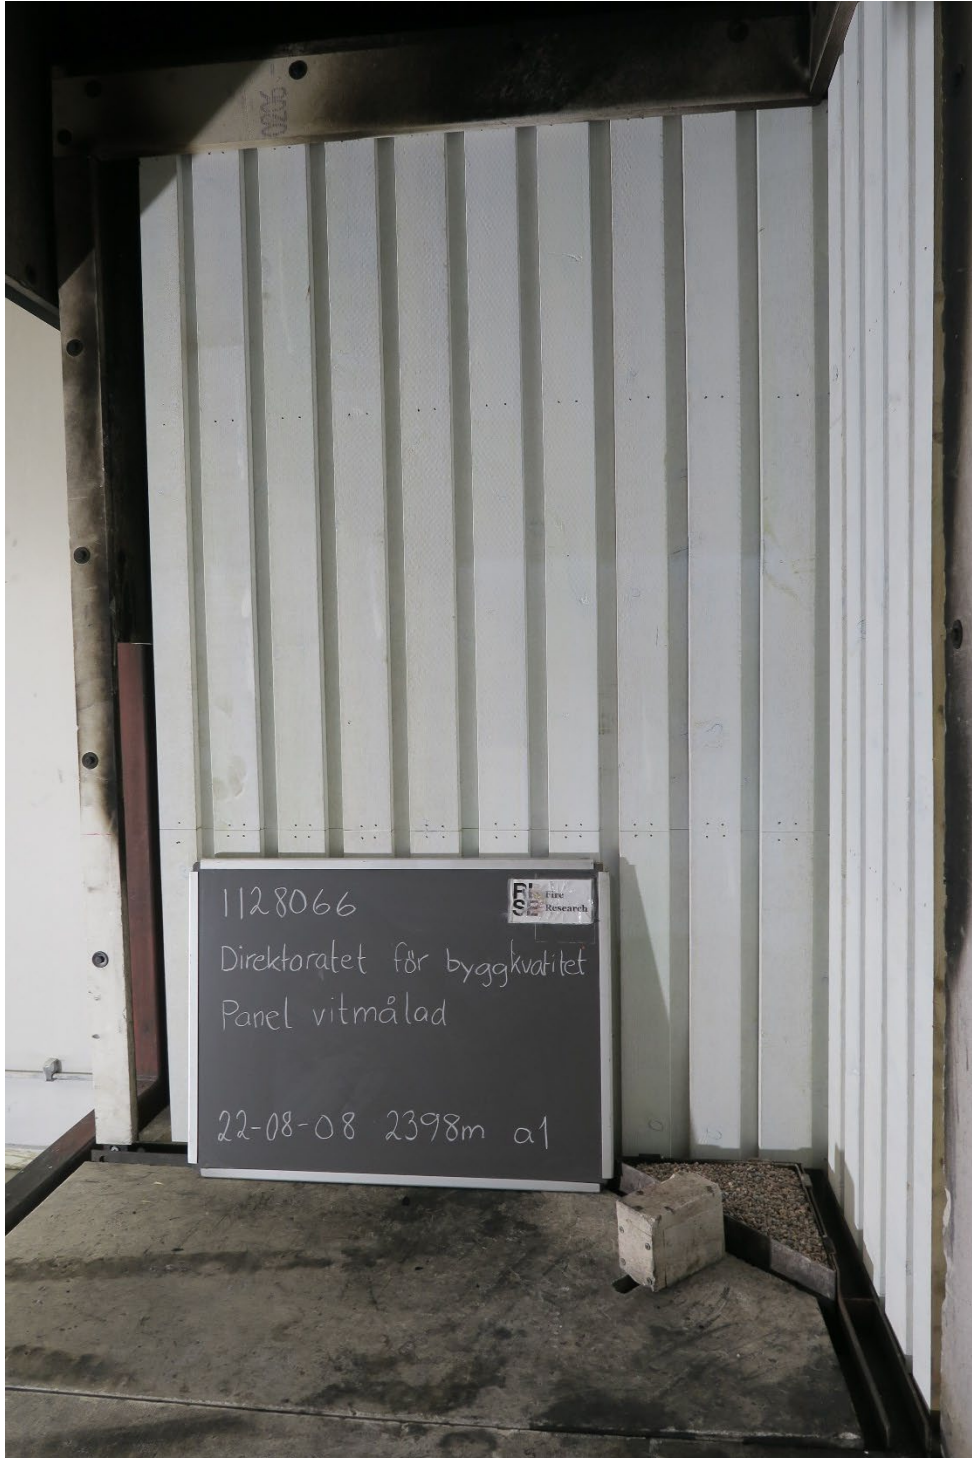 1128066
RI
SE
Fire
Research
Direktoratet för byggkvatitet
Panel vitmålad
22-08-08 2398m a1